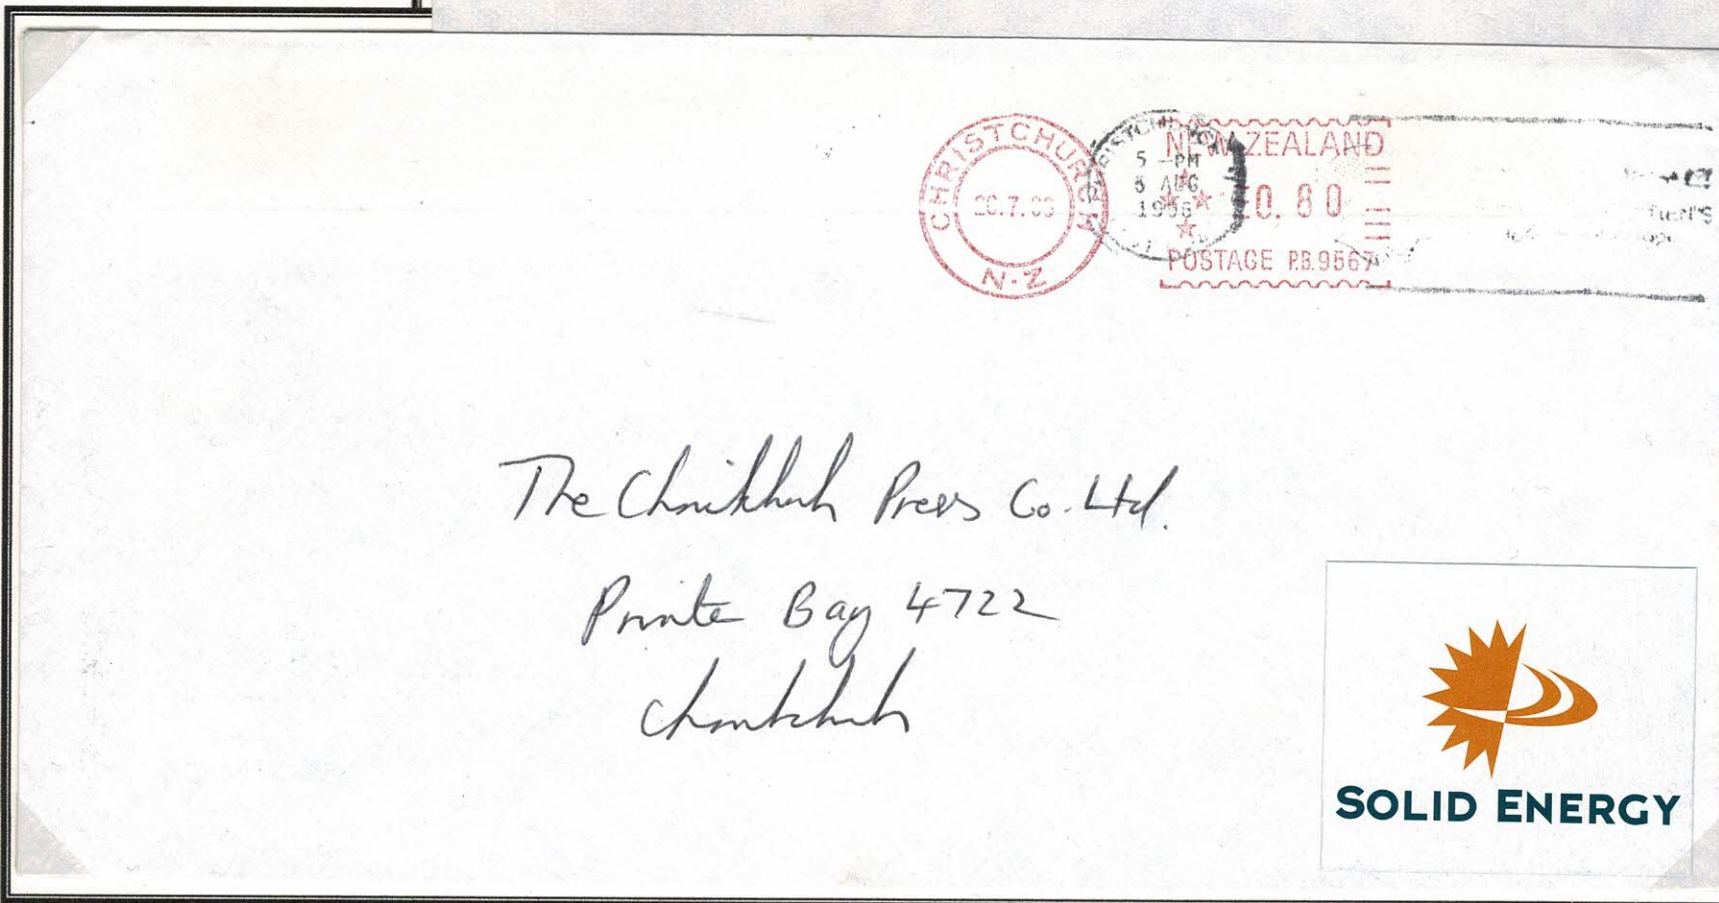 CHRISTCHURCH
N-Z
CHRISTCHURCH
5 -PM
5 AUG
NEW ZEALAND
0.80
POSTAGE P.B.9567
The Christchurch Press Co. Ltd.
Private Bag 4722
Christchurch
SOLID ENERGY